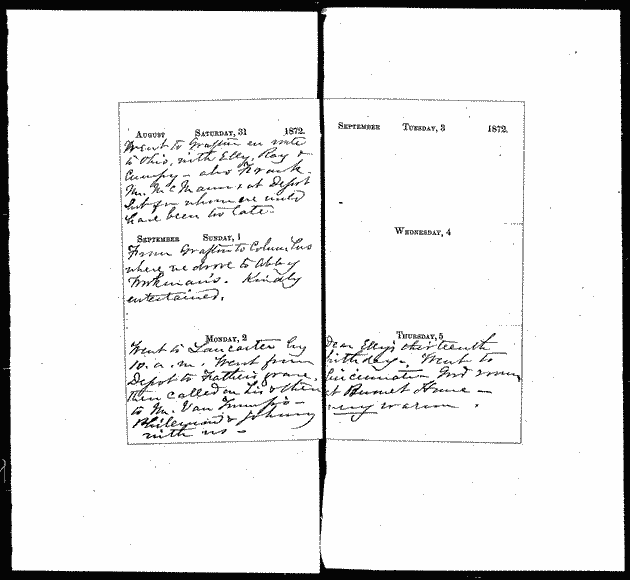 August Saturday, 31 1872.
Went to Grafton en route
to Ohio, with Elly, Ray &
Cumpy - also Frank.
Mr. McMann at Depot
but for whom we would
have been too late.
September Sunday, 1
From Grafton to Columbus
where we drove to Abby
Workman's. Kindly
entertained.
Monday, 2
Went to Lancaster by
10. a. m. Went from
Depot to Father's grave.
Then called on Liz & then
to Mr. Van Trump's -
Philemon & Johnny
with us -
September Tuesday, 3 1872.
Wednesday, 4
Thursday, 5
Dear Elly's thirteenth
birthday. Went to
Cincinnati - Good rooms
at Burnet House -
very warm.